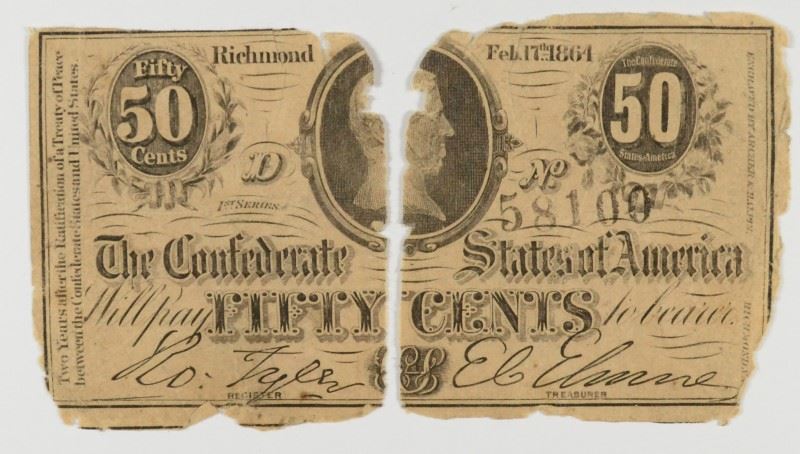 Two Years after the Ratification of a Treaty of Peace
between the Confederate States and United States.
Fifty
50
Cents
Richmond
Feb. 17th. 1864
The Confederate
50
States of America
D
1ST SERIES
No
58100
The Confederate States of America
Will pay FIFTY CENTS to bearer.
Ro: Tyler
REGISTER
TREASURER
ENGRAVED BY ARCHER & HALPIN
RICHMOND